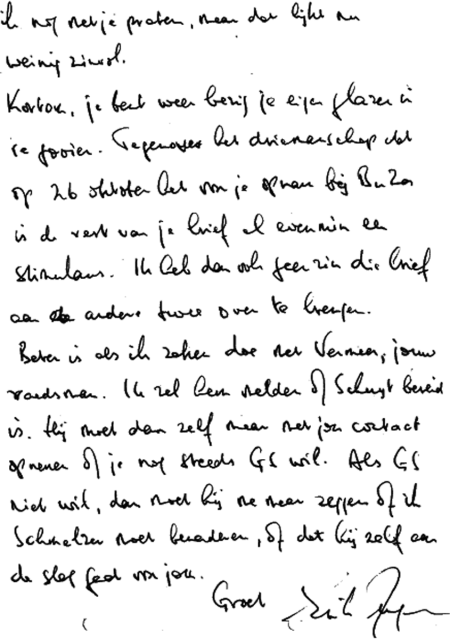 ik nog met je praten, maar dat lijkt nu
weinig zinvol.
Kortom, je bent weer bezig je eigen glazen in
te gooien. Tegenover het driemanschap dat
op 26 oktober het voor je opnam bij BuZa
is de rest van je brief al evenmin een
stimulans. Ik heb dan ook geen zin die brief
aan andere twee over te brengen.
Beter is als ik zaken doe met Vermeer, jouw
raadsman. Ik zal hem melden of Schuyt bereid
is. Hij moet dan zelf maar met jou contact
opnemen of je nog steeds GS wil. Als GS
niet wil, dan moet hij me maar zeggen of ik
Schmelzer moet benaderen, of dat hij zelf aan
de slag gaat voor jou.
Groet